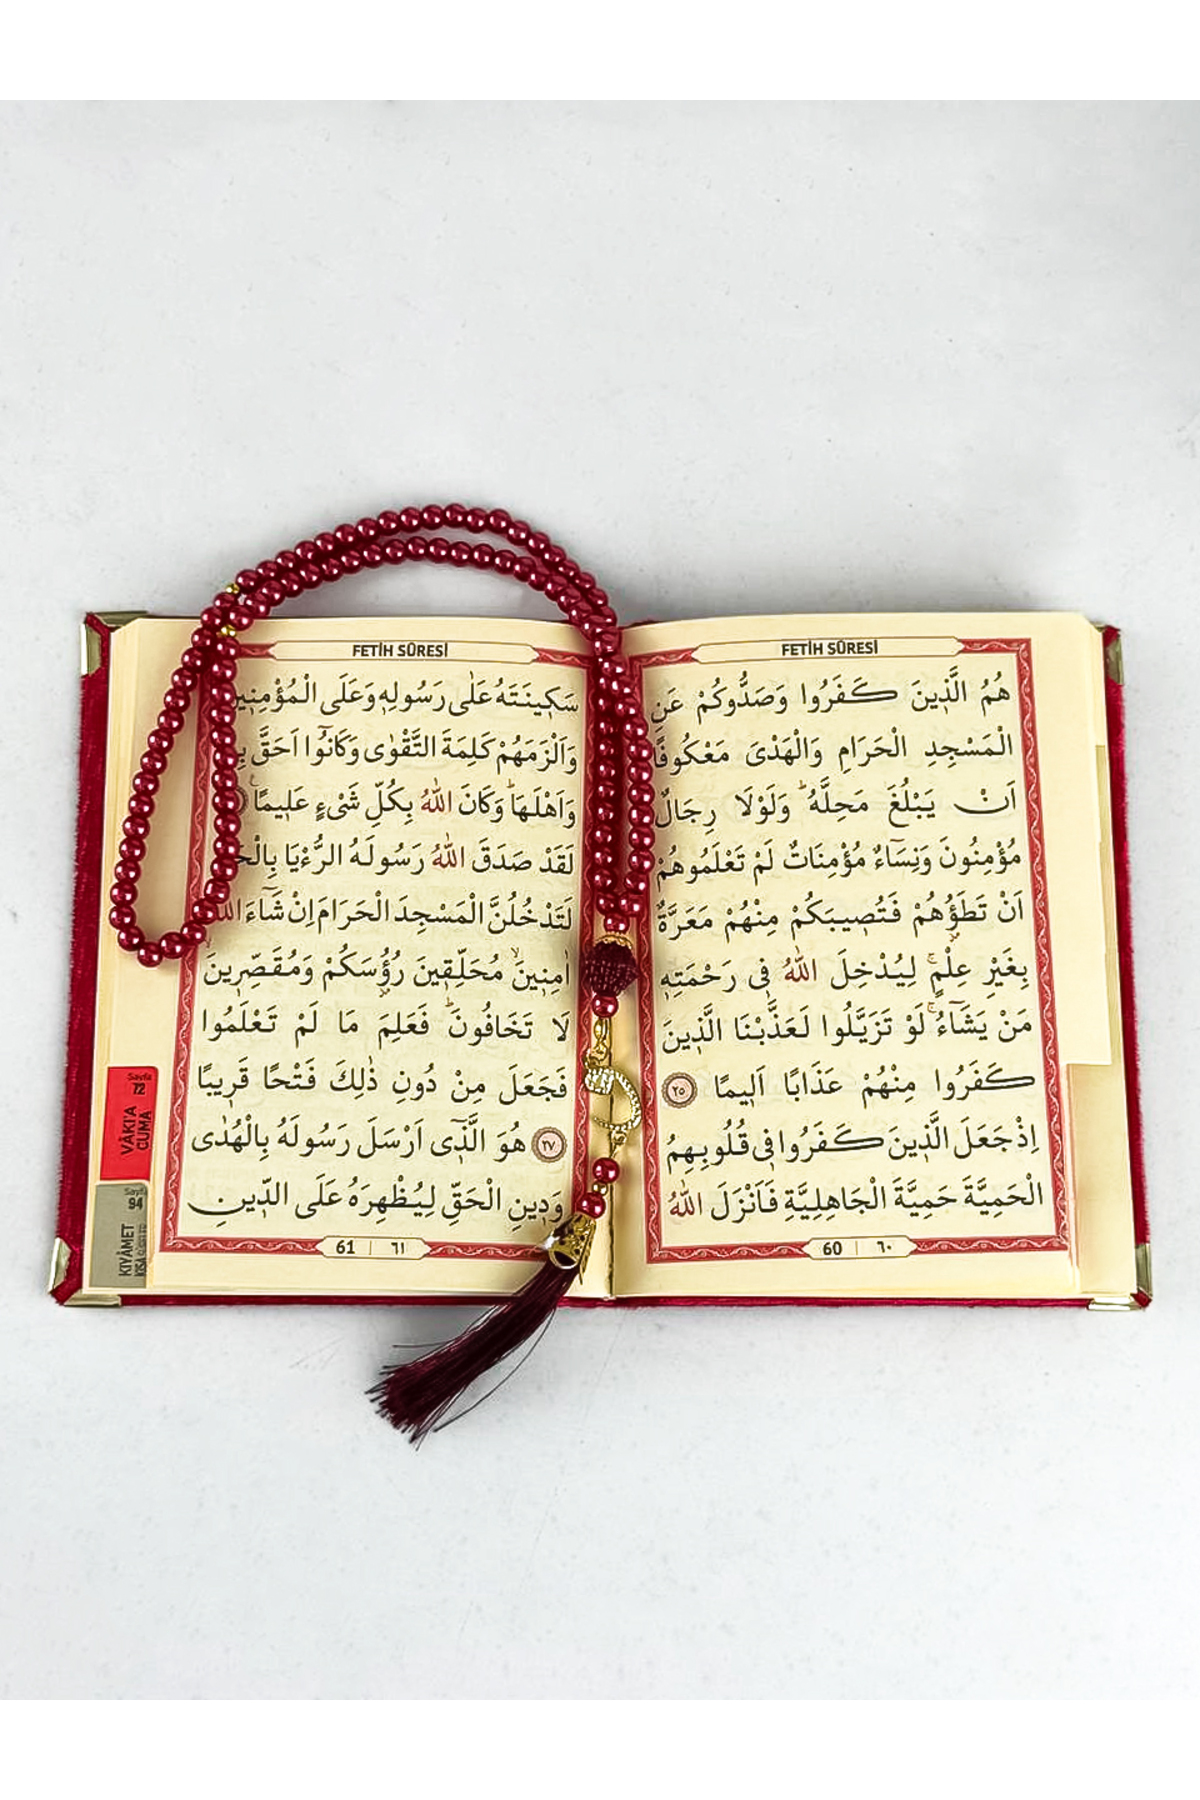 FETİH SÛRESİ
هُمُ الَّذِينَ كَفَرُوا وَصَدُّوكُمْ عَنِ
الْمَسْجِدِ الْحَرَامِ وَالْهَدْىَ مَعْكُوفًا
اَنْ يَبْلُغَ مَحِلَّهُ ۜ وَلَوْلَا رِجَالٌ
مُؤْمِنُونَ وَنِسَٓاءٌ مُؤْمِنَاتٌ لَمْ تَعْلَمُوهُمْ
اَنْ تَطَؤُ۫هُمْ فَتُصِيبَكُمْ مِنْهُمْ مَعَرَّةٌ
بِغَيْرِ عِلْمٍۚ لِيُدْخِلَ اللّٰهُ فِى رَحْمَتِهِ
مَنْ يَشَٓاءُۚ لَوْ تَزَيَّلُوا لَعَذَّبْنَا الَّذِينَ
كَفَرُوا مِنْهُمْ عَذَابًا اَلِيمًا ٢٥
اِذْ جَعَلَ الَّذِينَ كَفَرُوا فِى قُلُوبِهِمُ
الْحَمِيَّةَ حَمِيَّةَ الْجَاهِلِيَّةِ فَاَنْزَلَ اللّٰهُ
60 | ٦٠
FETİH SÛRESİ
سَكِينَتَهُ عَلٰى رَسُولِهِ وَعَلَى الْمُؤْمِنِينَ
وَاَلْزَمَهُمْ كَلِمَةَ التَّقْوٰى وَكَانُٓوا اَحَقَّ
وَاَهْلَهَاۜ وَكَانَ اللّٰهُ بِكُلِّ شَىْءٍ عَلِيمًا
لَقَدْ صَدَقَ اللّٰهُ رَسُولَهُ الرُّءْيَا
لَتَدْخُلُنَّ الْمَسْجِدَ الْحَرَامَ اِنْ شَٓاءَ اللّٰهُ
اٰمِنِينَۙ مُحَلِّقِينَ رُؤُ۫سَكُمْ وَمُقَصِّرِينَۙ
لَا تَخَافُونَۜ فَعَلِمَ مَا لَمْ تَعْلَمُوا
فَجَعَلَ مِنْ دُونِ ذٰلِكَ فَتْحًا قَرِيبًا
٢٧ هُوَ الَّذِٓى اَرْسَلَ رَسُولَهُ بِالْهُدٰى
وَدِينِ الْحَقِّ لِيُظْهِرَهُ عَلَى الدِّينِ
61 | ٦١
Sayfa
72
VÂKI'A
CUMA
Sayfa
94
KIYÂMET